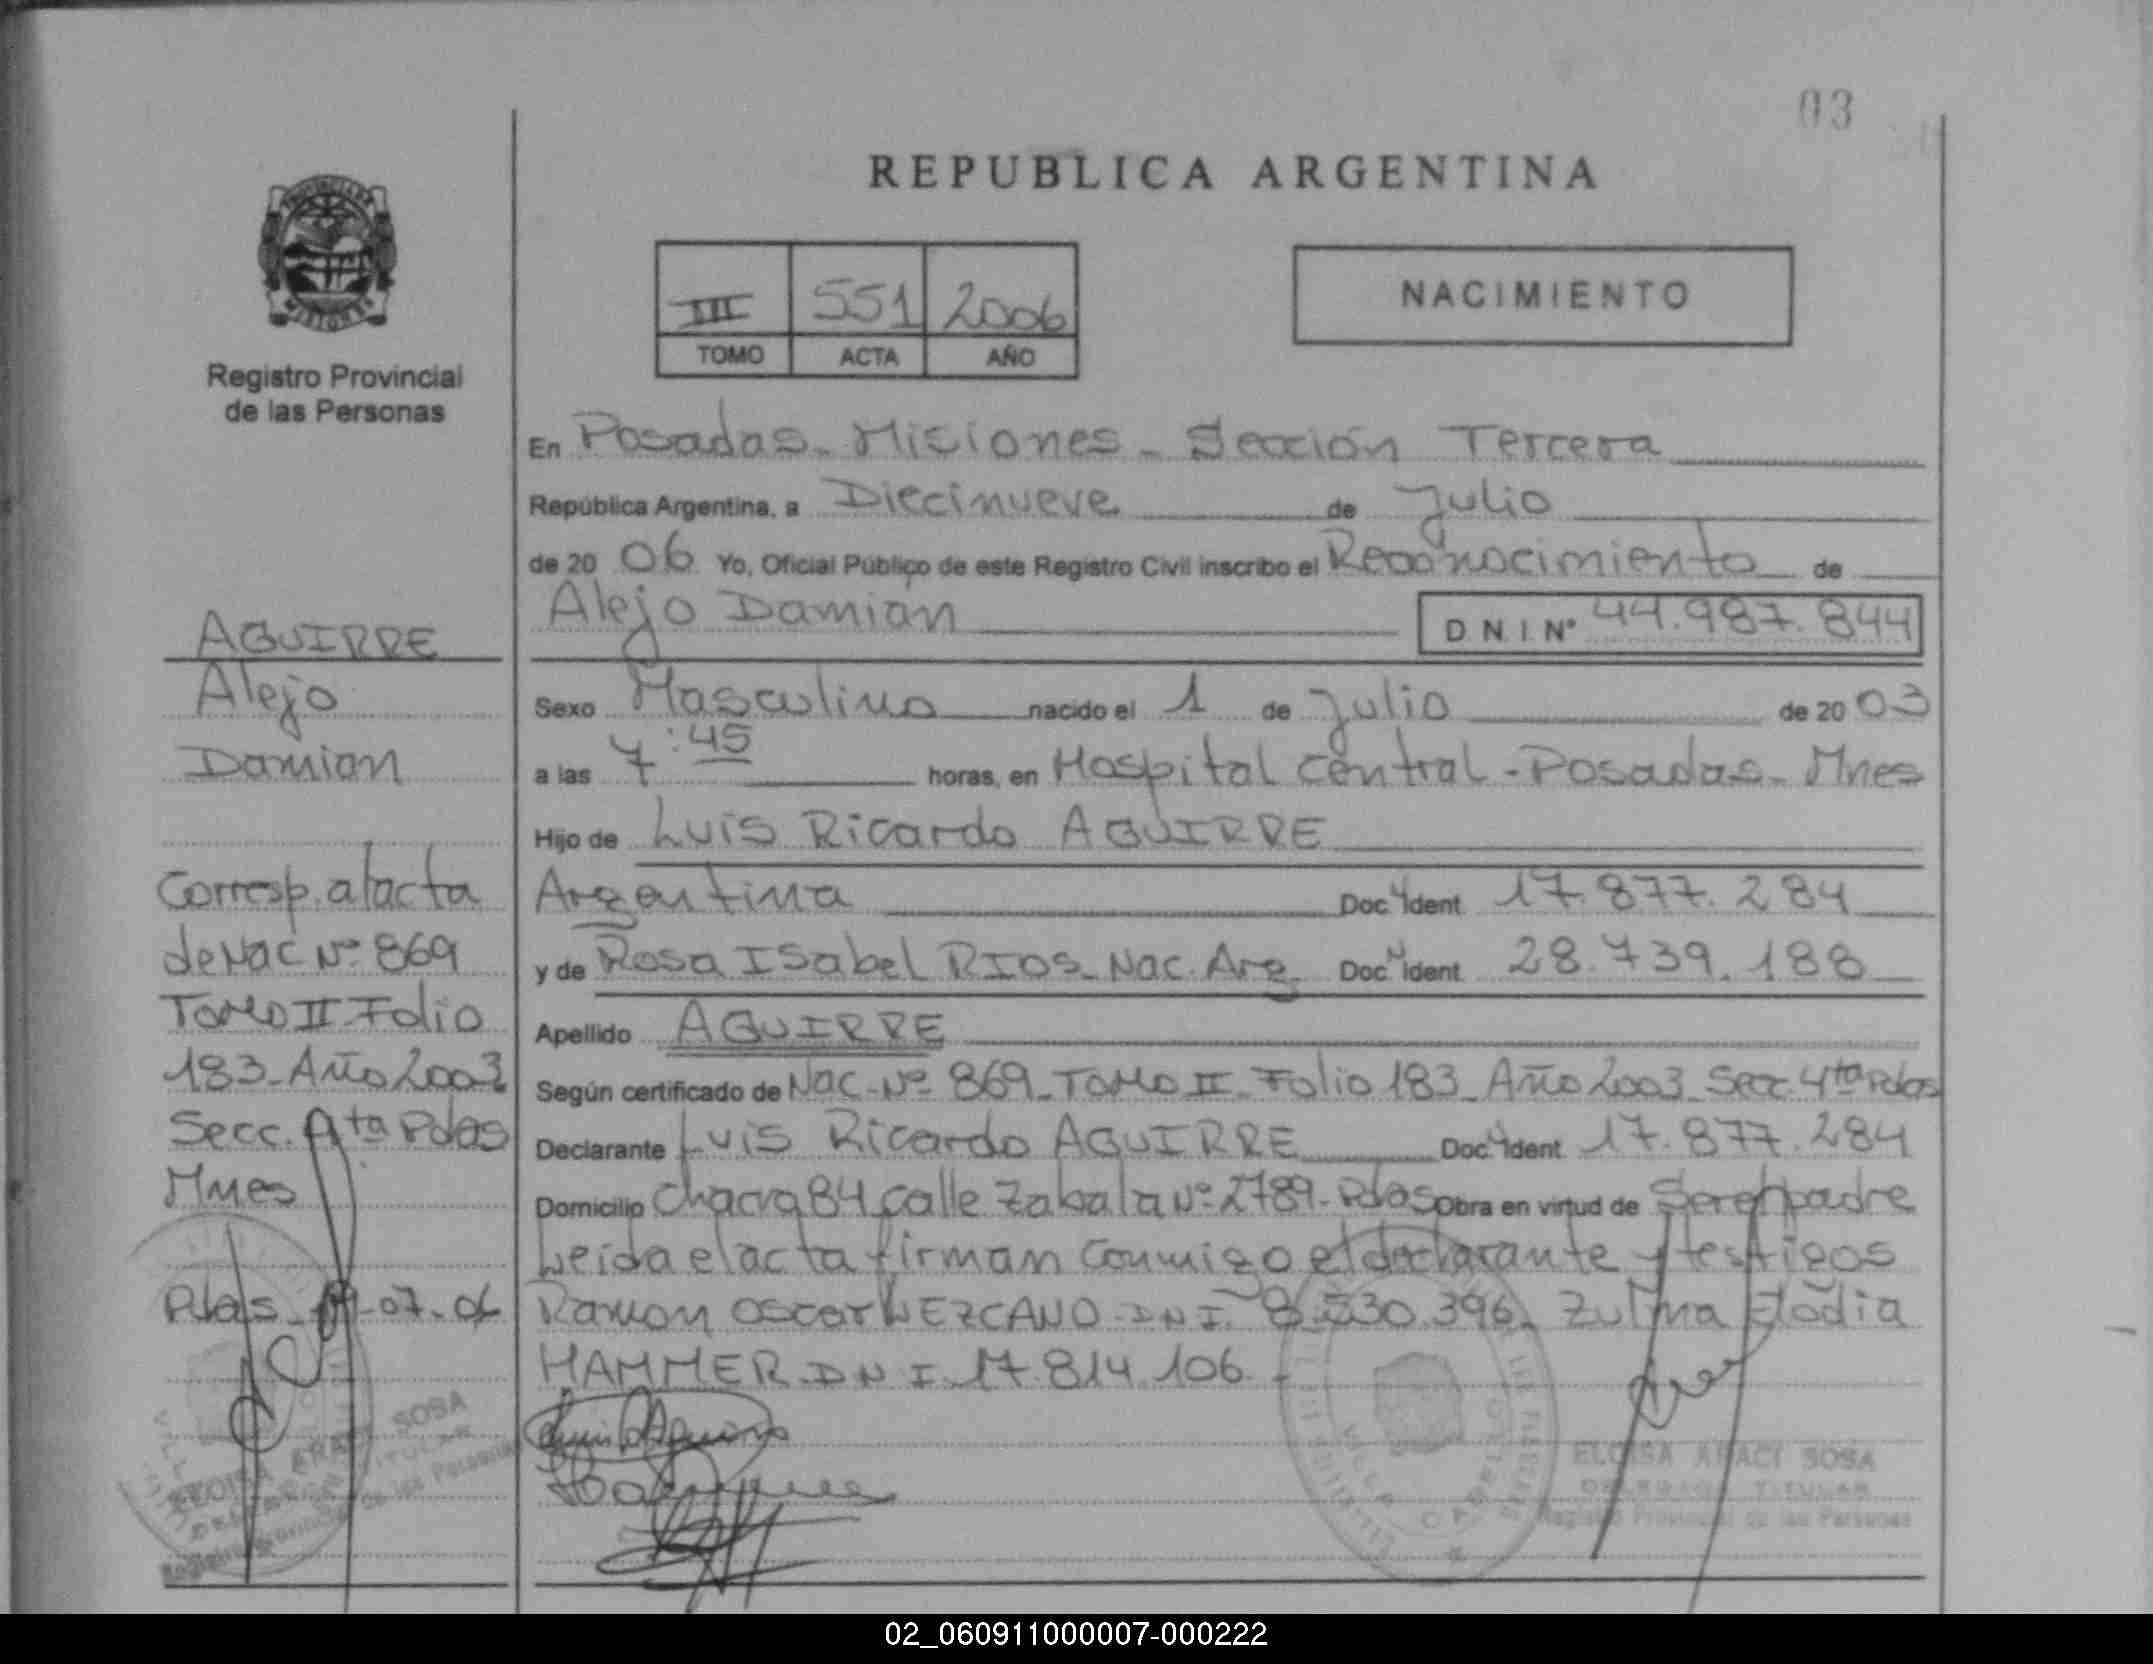 03
REPUBLICA ARGENTINA
III 551 2006
TOMO ACTA AÑO
NACIMIENTO
Registro Provincial
de las Personas
AGUIRRE
Alejo
Damian
Corresp. al acta
de Nac Nº 869
Tomo II Folio
183_Año 2003
Secc. 4ta Pdas
Mnes
Pdas_19-07-06
En Posadas_Misiones_Sección Tercera
República Argentina, a Diecinueve de Julio
de 20 06 Yo, Oficial Público de este Registro Civil inscribo el Reconocimiento de
Alejo Damián D.N.I Nº 44.987.844
Sexo Masculino nacido el 1 de Julio de 20 03
a las 7:45 horas, en Hospital Central-Posadas_Mnes
Hijo de Luis Ricardo AGUIRRE
Argentina Doc. Ident 17.877.284
y de Rosa Isabel RIOS_Nac. Arg. Doc. Ident 28.739.188
Apellido AGUIRRE
Según certificado de Nac-Nº 869_Tomo II_Folio 183_Año 2003_Secc. 4ta Pdas
Declarante Luis Ricardo AGUIRRE Doc. Ident 17.877.284
Domicilio Chacra 84 calle Zabala Nº 2789-Pdas Obra en virtud de Ser el padre
Leida el acta firman conmigo el declarante y testigos
Ramon Oscar LEZCANO DNI 396 Zulma Elodia
HAMMER DNI 17.814.106
ELOISA ARACI SOSA
DELEGADA TITULAR
Registro Provincial de las Personas
ELOISA ARACI SOSA
DELEGADA TITULAR
Registro Provincial de las Personas
02_060911000007-000222